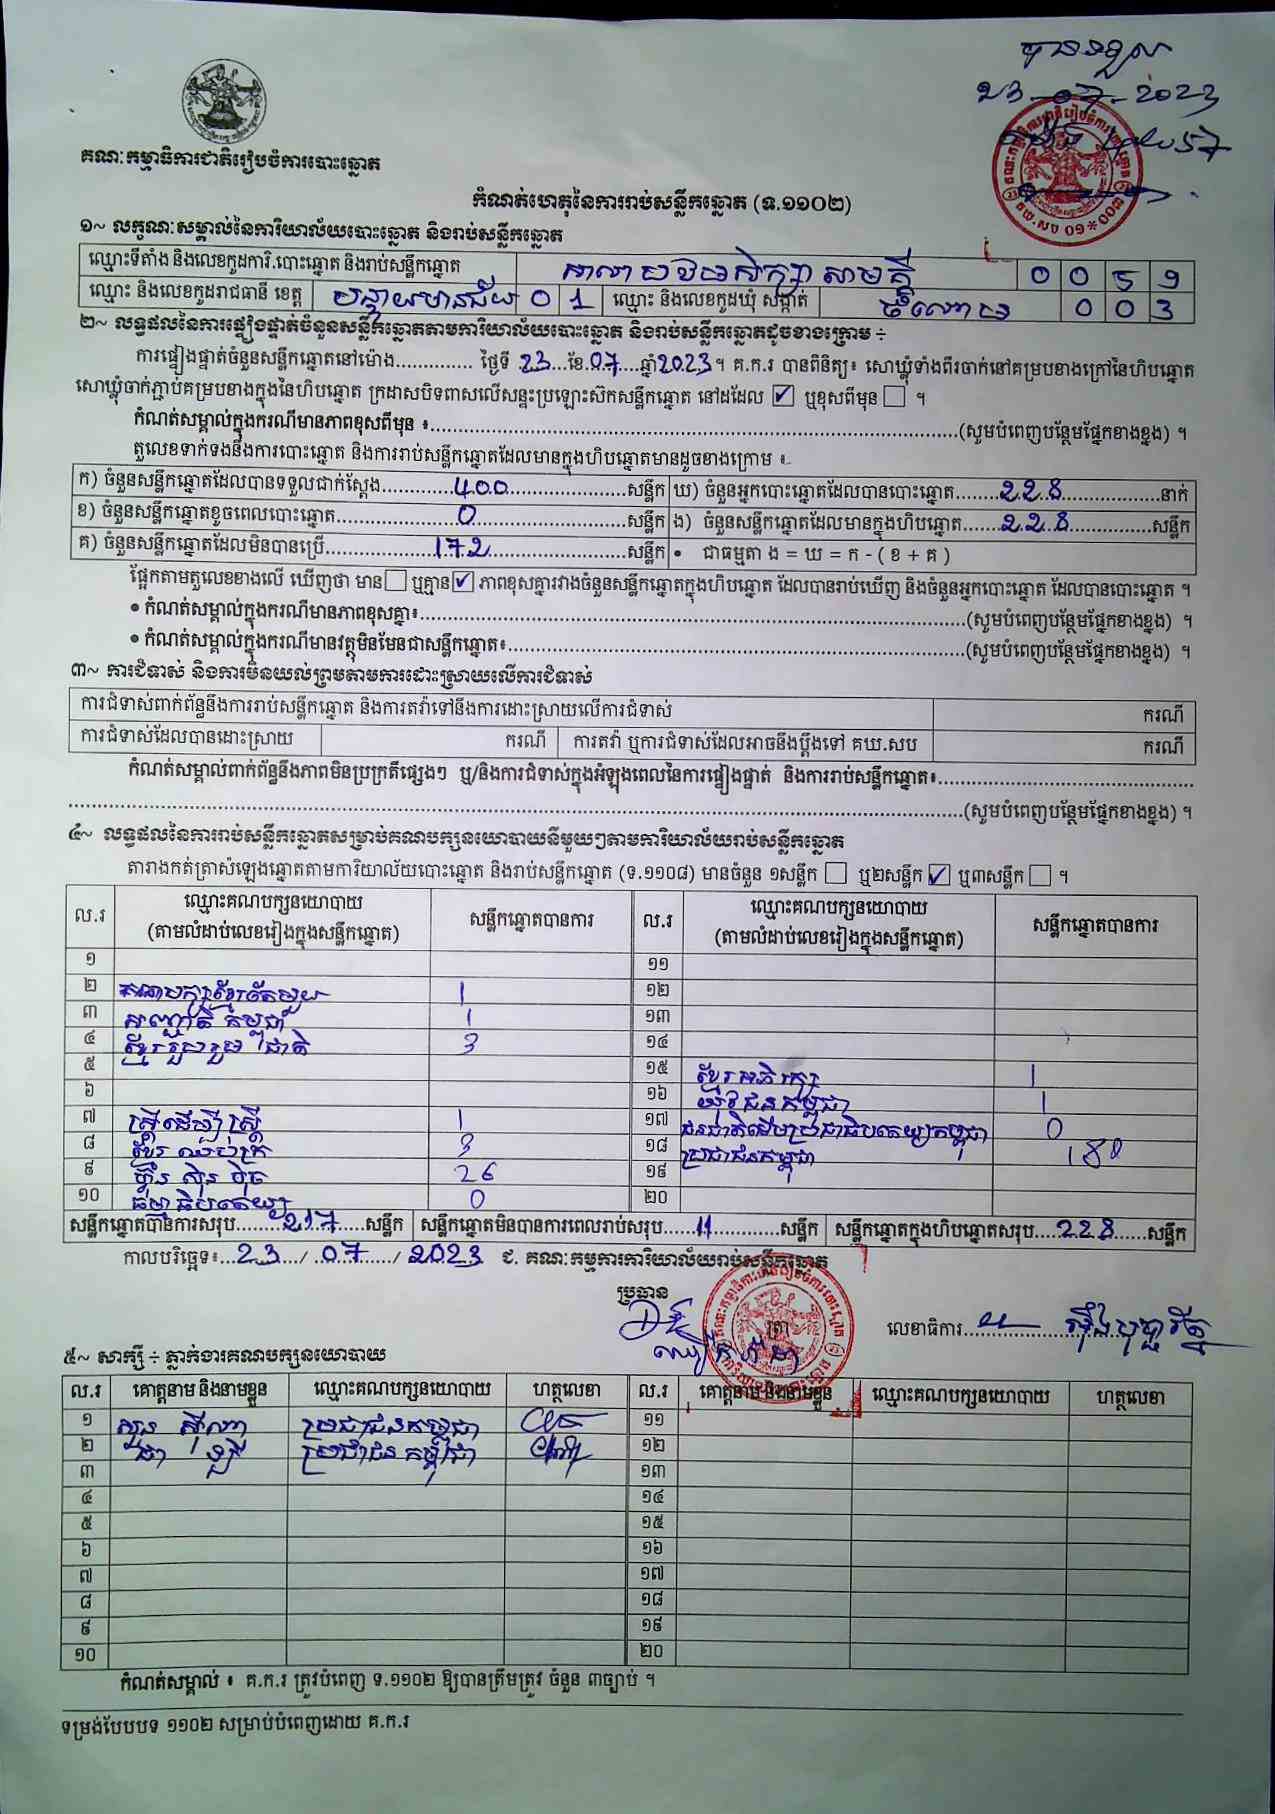 បានទទួល
23-07-2023
គណៈកម្មាធិការជាតិរៀបចំការបោះឆ្នោត
កំណត់ហេតុនៃការរាប់សន្លឹកឆ្នោត (ទ.១១០២)
១~ លក្ខណៈសម្គាល់នៃការិយាល័យបោះឆ្នោត និងរាប់សន្លឹកឆ្នោត
ឈ្មោះទីតាំង និងលេខកូដការិ.បោះឆ្នោត និងរាប់សន្លឹកឆ្នោត សាលាបឋមសិក្សា សាមគ្គី 0 0 5 9
ឈ្មោះ និងលេខកូដរាជធានី ខេត្ត បន្ទាយមានជ័យ 0 1 ឈ្មោះ និងលេខកូដឃុំ សង្កាត់ 0 0 3
២~ លទ្ធផលនៃការផ្ទៀងផ្ទាត់ចំនួនសន្លឹកឆ្នោតតាមការិយាល័យបោះឆ្នោត និងរាប់សន្លឹកឆ្នោតដូចខាងក្រោម ÷
ការផ្ទៀងផ្ទាត់ចំនួនសន្លឹកឆ្នោតនៅម៉ោង.............. ថ្ងៃទី 23 ខែ 07 ឆ្នាំ 2023 ។ គ.ក.រ បានពិនិត្យ៖ សោឃ្លុំទាំងពីរចាក់នៅគម្របខាងក្រៅនៃហិបឆ្នោត
សោឃ្លុំចាក់ភ្ជាប់គម្របខាងក្នុងនៃហិបឆ្នោត ក្រដាសបិទពាសលើសន្ទះប្រឡោះស៊កសន្លឹកឆ្នោត នៅដដែល ☑ ឬខុសពីមុន ☐ ។
កំណត់សម្គាល់ក្នុងករណីមានភាពខុសពីមុន ៖..............(សូមបំពេញបន្ថែមផ្នែកខាងខ្នង) ។
តួលេខទាក់ទងនឹងការបោះឆ្នោត និងការរាប់សន្លឹកឆ្នោតដែលមានក្នុងហិបឆ្នោតមានដូចខាងក្រោម ៖
ក) ចំនួនសន្លឹកឆ្នោតដែលបានទទួលជាក់ស្តែង 400 សន្លឹក ឃ) ចំនួនអ្នកបោះឆ្នោតដែលបានបោះឆ្នោត 228 នាក់
ខ) ចំនួនសន្លឹកឆ្នោតខូចពេលបោះឆ្នោត 0 សន្លឹក ង) ចំនួនសន្លឹកឆ្នោតដែលមានក្នុងហិបឆ្នោត 228 សន្លឹក
គ) ចំនួនសន្លឹកឆ្នោតដែលមិនបានប្រើ 172 សន្លឹក • ជាធម្មតា ង = ឃ = ក - ( ខ + គ )
ផ្អែកតាមតួលេខខាងលើ ឃើញថា មាន ☐ ឬគ្មាន ☑ ភាពខុសគ្នារវាងចំនួនសន្លឹកឆ្នោតក្នុងហិបឆ្នោត ដែលបានរាប់ឃើញ និងចំនួនអ្នកបោះឆ្នោត ដែលបានបោះឆ្នោត ។
• កំណត់សម្គាល់ក្នុងករណីមានភាពខុសគ្នា៖..............(សូមបំពេញបន្ថែមផ្នែកខាងខ្នង) ។
• កំណត់សម្គាល់ក្នុងករណីមានវត្ថុមិនមែនជាសន្លឹកឆ្នោត៖..............(សូមបំពេញបន្ថែមផ្នែកខាងខ្នង) ។
៣~ ការជំទាស់ និងការមិនយល់ព្រមតាមការដោះស្រាយលើការជំទាស់
ការជំទាស់ពាក់ព័ន្ធនឹងការរាប់សន្លឹកឆ្នោត និងការតវ៉ាទៅនឹងការដោះស្រាយលើការជំទាស់ ករណី
ការជំទាស់ដែលបានដោះស្រាយ ករណី ការតវ៉ា ឬការជំទាស់ដែលអាចនឹងប្តឹងទៅ គឃ.សប ករណី
កំណត់សម្គាល់ពាក់ព័ន្ធនឹងភាពមិនប្រក្រតីផ្សេងៗ ឬ/និងការជំទាស់ក្នុងអំឡុងពេលនៃការផ្ទៀងផ្ទាត់ និងការរាប់សន្លឹកឆ្នោត៖..............
..............(សូមបំពេញបន្ថែមផ្នែកខាងខ្នង) ។
៤~ លទ្ធផលនៃការរាប់សន្លឹកឆ្នោតសម្រាប់គណបក្សនយោបាយនីមួយៗតាមការិយាល័យរាប់សន្លឹកឆ្នោត
តារាងកត់ត្រាសំឡេងឆ្នោតតាមការិយាល័យបោះឆ្នោត និងរាប់សន្លឹកឆ្នោត (ទ.១១០៨) មានចំនួន ១សន្លឹក ☐ ឬ២សន្លឹក ☑ ឬ៣សន្លឹក ☐ ។
ល.រ ឈ្មោះគណបក្សនយោបាយ សន្លឹកឆ្នោតបានការ ល.រ ឈ្មោះគណបក្សនយោបាយ សន្លឹកឆ្នោតបានការ
(តាមលំដាប់លេខរៀងក្នុងសន្លឹកឆ្នោត) (តាមលំដាប់លេខរៀងក្នុងសន្លឹកឆ្នោត)
១ ១១
២ គណបក្សខ្មែរតែមួយ 1 ១២
៣ សញ្ជាតិកម្ពុជា 1 ១៣
៤ ខ្មែររួបរួមជាតិ 3 ១៤
៥ ១៥ ខ្មែរអភិរក្ស 1
៦ ១៦ យុវជនកម្ពុជា 1
៧ ស្រ្តីដើម្បីស្រ្តី 1 ១៧ ជនជាតិដើមប្រជាធិបតេយ្យកម្ពុជា 0
៨ ខ្មែរឈប់ក្រ 3 ១៨ ប្រជាជនកម្ពុជា 180
៩ ហ៊្វុនស៊ិនប៉ិច 26 ១៩
១០ ធម្មាធិបតេយ្យ 0 ២០
សន្លឹកឆ្នោតបានការសរុប 217 សន្លឹក សន្លឹកឆ្នោតមិនបានការពេលរាប់សរុប 11 សន្លឹក សន្លឹកឆ្នោតក្នុងហិបឆ្នោតសរុប 228 សន្លឹក
កាលបរិច្ឆេទ៖ 23 / 07 / 2023 ជ. គណៈកម្មការការិយាល័យរាប់សន្លឹកឆ្នោត
ប្រធាន
ត្រា លេខាធិការ
៥~ សាក្សី ÷ ភ្នាក់ងារគណបក្សនយោបាយ
ល.រ គោត្តនាម និងនាមខ្លួន ឈ្មោះគណបក្សនយោបាយ ហត្ថលេខា ល.រ គោត្តនាម និងនាមខ្លួន ឈ្មោះគណបក្សនយោបាយ ហត្ថលេខា
១ ប្រជាជនកម្ពុជា ១១
២ ប្រជាជនកម្ពុជា ១២
៣ ១៣
៤ ១៤
៥ ១៥
៦ ១៦
៧ ១៧
៨ ១៨
៩ ១៩
១០ ២០
កំណត់សម្គាល់ ៖ គ.ក.រ ត្រូវបំពេញ ទ.១១០២ ឱ្យបានត្រឹមត្រូវ ចំនួន ៣ច្បាប់ ។
ទម្រង់បែបបទ ១១០២ សម្រាប់បំពេញដោយ គ.ក.រ